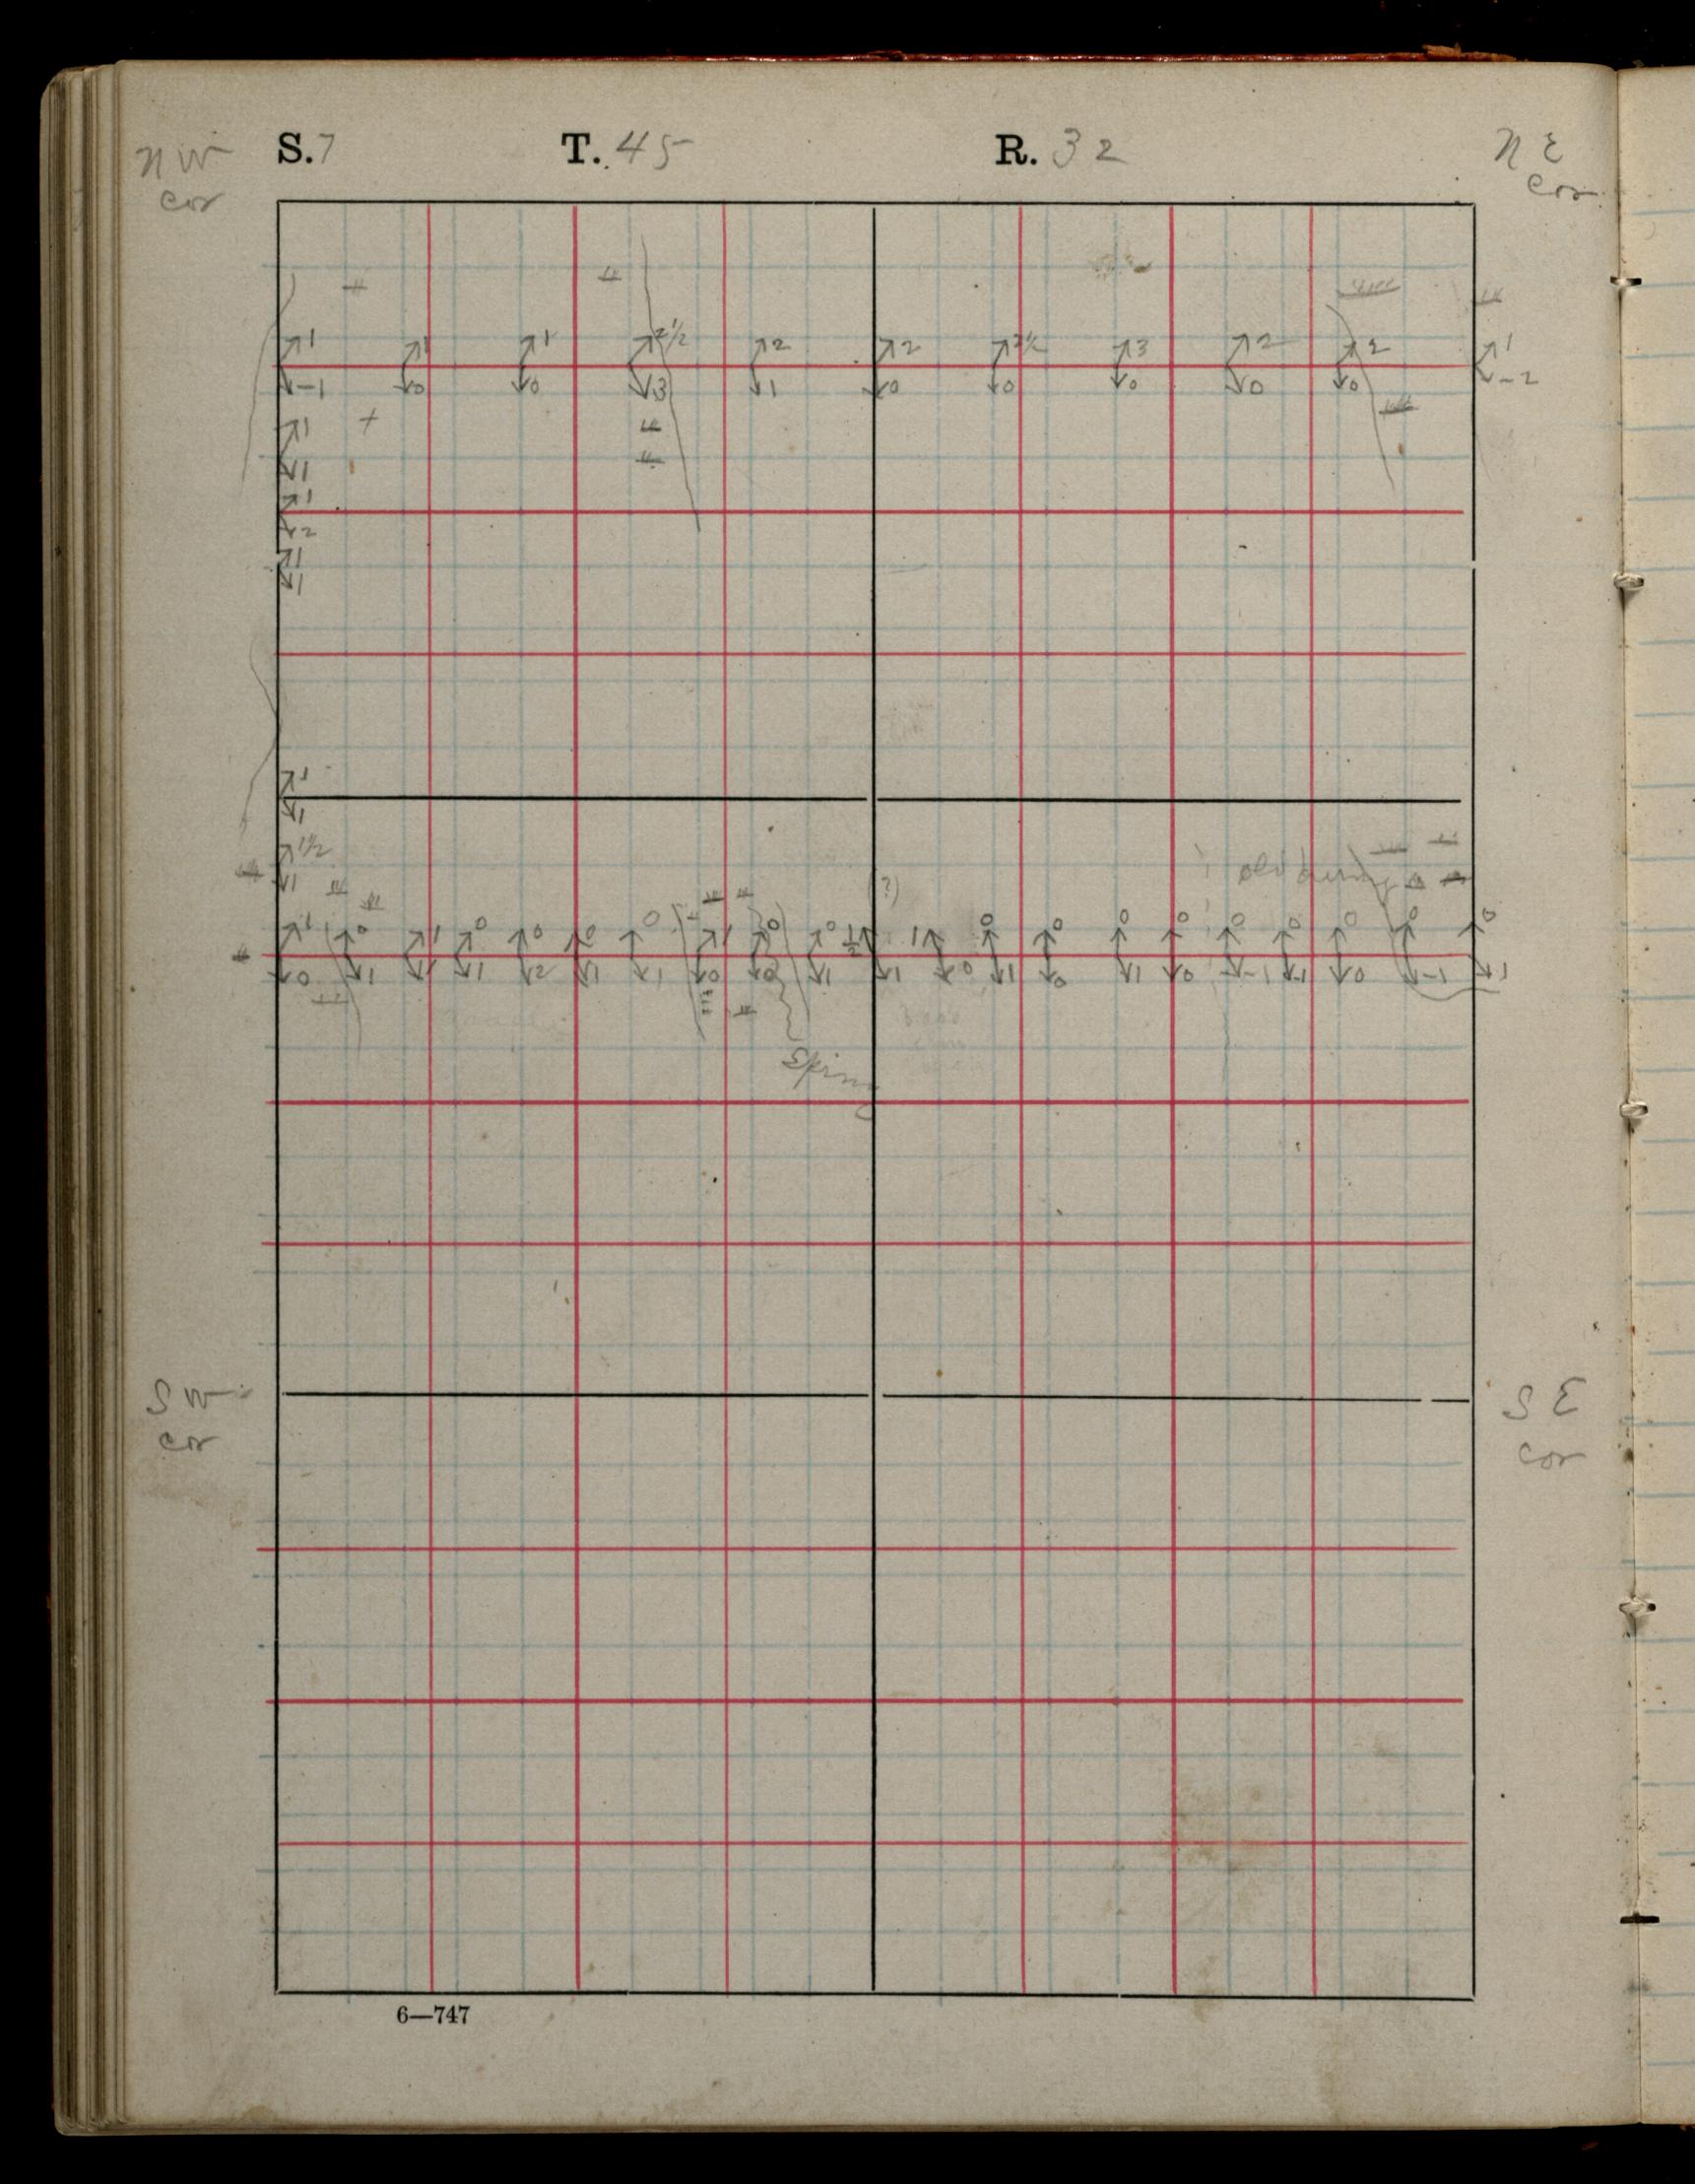 N W S. 7 T. 45 R. 32 N E
cor cor
1 1 1 2½ 2 2 2½ 3 2 2 1
-1 0 0 3 1 0 0 0 0 0 -2
1
1
1
2
1
1
1
1
1½
1
(?)
1 0 1 0 0 0 0 1 0 0 ½ 1 0 0 0 0 0 0 0 0 0
0 1 1 1 2 1 1 0 0 1 1 0 1 0 1 0 -1 -1 0 -1 +1
Spring
S W S E
cor cor
6—747